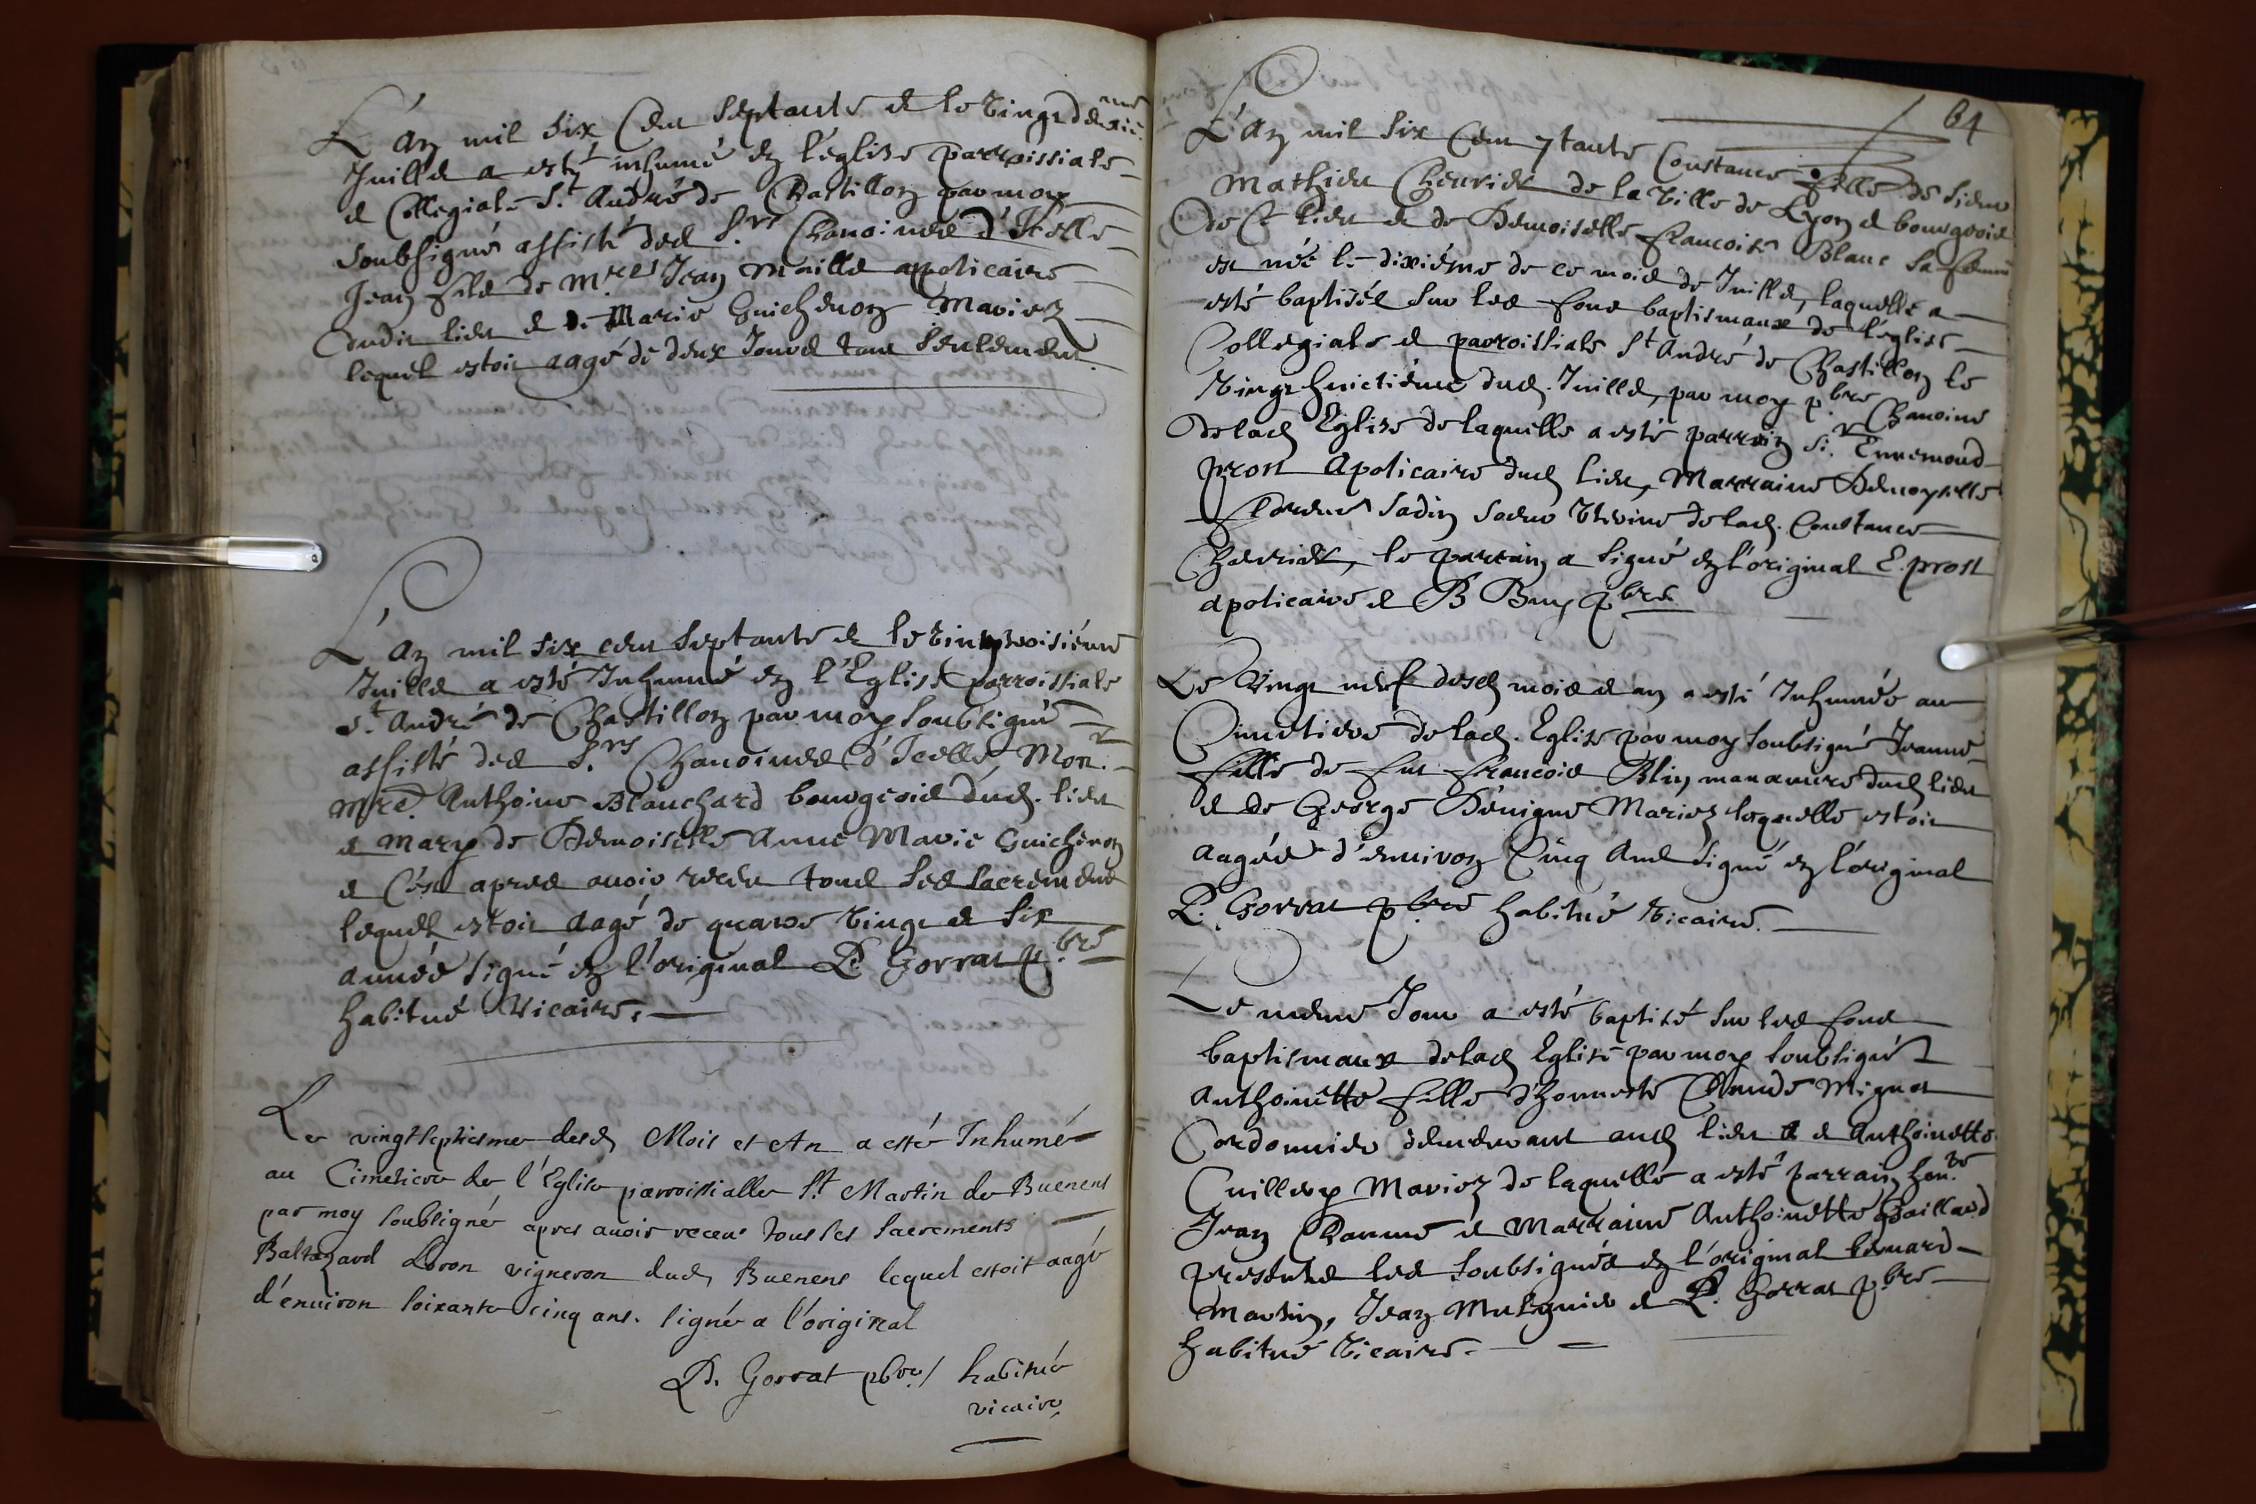 L'an mil six cent septante et le vingt deuxie.me
Juillet a esté inhumé en l'eglise parroissiale
et Collegiale S.t André de Chastillon par moy
soubsigné assisté des S.rs Chanoines d'Icelle
Jean fils de M.re Jean Maille appoticaire
dudit lieu et de Marie Guichenon Mariez
lequel estoit aagé de deux Jours tant seulement.
L'an mil six cent septante et le vingtroisiéme
Juillet a esté Inhumé en l'Eglise parroissiale
S.t André de Chastillon par moy soubsigné
assisté des S.rs Chanoines d'Icelle Mon.r
Mre. Anthoine Blanchard bourgeois dud. lieu
et mary de Demoiselle Anne Marie Guichenon
et C'est apres avoir receu tous ses sacrements
lequel estoit aagé de quatre vingt et six
années signé en l'original P. Gorrat p.bre
habitué Vicaire.
Le vingtseptiesme desd. Mois et An a esté Inhumé
au Cimetiere de l'Eglise parroissialle S.t Martin de Buenens
par moy soubsigné apres avoir receu tous les sacrements
Baltazard Loron vigneron dud. Buenens lequel estoit aagé
d'environ soixante cinq ans. signé a l'original
P. Gorrat pbre / habitué
vicaire
64
L'an mil six cent 7tante Constance fille de sieur
Mathieu Chevrier de la ville de Lyon et bourgeois
de Ce lieu et de Demoiselle francoise Blanc sa femme
est née le dixiéme de ce mois de Juillet, laquelle a
esté baptisée sur les fons baptismaux de l'eglise
Collegiale et parroissiale S.t André de Chastillon le
vingt huictiéme dud. Juillet, par moy p.bre Chanoine
de lad. Eglise de laquelle a esté parrain Si.r Ennemond
Prost Apoticaire dud. lieu, Marraine Demoyselle
Sadin de lad. Constance
Chevrier, le parrain a signé en l'original E. prost
apoticaire et B Buy p.bre
Le Vingt neuf desd. mois et an a esté Inhumée au
Cimetiere de lad. Eglise par moy soubsigné Jeanne
fille de feu francois Blin manœuvre dud. lieu
et de George Bénigne Mariez laquelle estoit
aagée d'environ Cinq Ans signé en l'original
P. Gorrat p.bre habitué vicaire.
Le meme Jour a esté baptisé sur les fons
baptismaux de lad. Eglise par moy soubsigné
Anthoinette fille d'honneste Claude Mignot
Cordonnier demeurant aud. lieu et Anthoinette
Cuillery Mariez de laquelle a esté parrain hon.te
Jean Channe et Marraine Anthoinette Gaillard
presents les soubsignés en l'original benard
Martin, Jean et P. Gorrat p.bre
habitué vicaire.